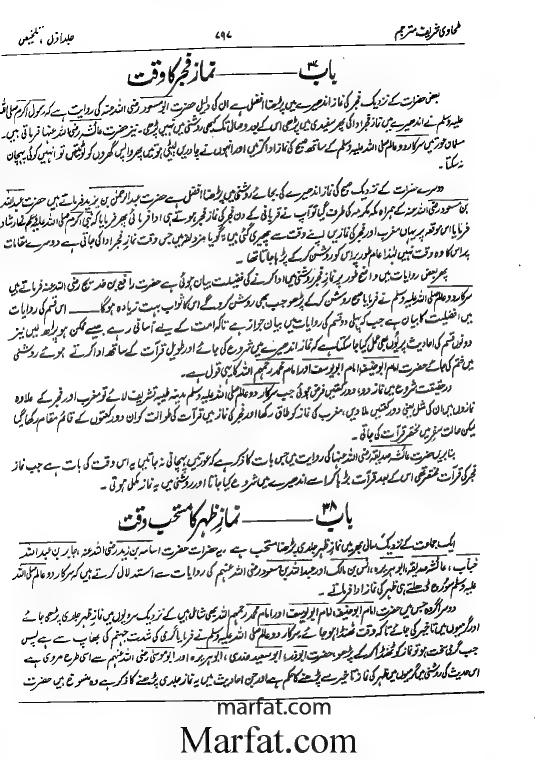 طحاوی شریف مترجم ۷۹۷ جلد اول، تلخیص
باب ۳۷ ——— نماز فجر کا وقت
بعض حضرات کے نزدیک فجر کی نماز اندھیرے میں پڑھنا افضل ہے ان کی دلیل حضرت ابو مسعود رضی اللہ عنہ کی روایت ہے کہ رسول اکرم صلی اللہ
علیہ وسلم نے اندھیرے میں نماز فجر ادا کی پھر سفیدی میں پڑھی اس کے بعد وصال تک کبھی روشنی میں نہیں پڑھی۔ نیز حضرت عائشہ رضی اللہ عنہا فرماتی ہیں۔
مسلمان عورتیں سرکار دو عالم صلی اللہ علیہ وسلم کے ساتھ صبح کی نماز ادا کرتیں اور انہوں نے چادریں لپیٹی ہوتیں پھر واپس گھروں کو لوٹتیں تو انہیں کوئی پہچان
نہ سکتا۔
دوسرے حضرات کے نزدیک صبح کی نماز اندھیرے کی بجائے روشنی میں پڑھنا افضل ہے حضرت عبدالرحمٰن بن یزید فرماتے ہیں حضرت عبداللہ
بن مسعود رضی اللہ عنہ کے ہمراہ مکہ مکرمہ کی طرف گیا تو آپ نے قربانی کے دن فجر کی نماز فجر ہوتے ہی ادا فرمائی پھر فرمایا کہ نبی اکرم صلی اللہ علیہ وسلم نے ارشاد
فرمایا اس موقعہ پر یہاں مغرب اور فجر کی نمازیں اپنے وقت سے پھیری گئی ہیں تو گویا مزدلفہ میں جس وقت نماز فجر ادا کی جاتی ہے دوسرے مقامات
پر اس کا وہ وقت نہیں لہٰذا عام طور پر اس کو روشن کر کے پڑھا جاتا تھا۔
پھر بعض روایات میں واضح طور پر نماز فجر روشنی میں ادا کرنے کی فضیلت بیان ہوئی ہے حضرت رافع بن خدیج رضی اللہ عنہ فرماتے ہیں
سرکار دو عالم صلی اللہ علیہ وسلم نے فرمایا صبح روشن کر کے پڑھو جب بھی روشن کرو گے اس کا ثواب بہت زیادہ ہوگا ——— اس قسم کی روایات
میں افضلیت کا بیان ہے جب کہ پہلی دو قسم کی روایات میں بیان جواز ہے تاکہ امت کے لیے آسانی رہے جیسے ممکن ہو پڑھ لیں نیز
دونوں قسم کی احادیث پر یوں بھی عمل کیا جا سکتا ہے کہ نماز اندھیرے میں شروع کی جائے اور طویل قرأت کے ساتھ ادا کرتے ہوئے روشنی
میں ختم کی جائے حضرت امام ابوحنیفہ امام ابویوسف اور امام محمد رحمہم اللہ کا یہی قول ہے۔
درحقیقت شروع میں نماز دو، دو رکعتیں فرض ہوئی جب سرکار دو عالم صلی اللہ علیہ وسلم مدینہ طیبہ تشریف لائے تو مغرب اور فجر کے علاوہ
نمازوں میں ان کی مثل یعنی دو رکعتیں ملا دیں، مغرب کی نماز کو طاق رکھا اور فجر کی نماز میں قرأت کی طوالت کو ان دو رکعتوں کے قائم مقام رکھا گیا
لیکن حالت سفر میں مختصر قرأت کی جاتی۔
بنا بریں حضرت عائشہ صدیقہ رضی اللہ عنہا کی روایت میں جس بات کا ذکر ہے کہ عورتیں پہچانی نہ جاتیں یہ اس وقت کی بات ہے جب نماز
فجر کی قرأت مختصر تھی اس کے بعد قرأت بڑھا کر اسے اندھیرے میں شروع کیا جاتا اور روشنی میں یہ نماز مکمل ہوتی۔
باب ۳۸ ——— نماز ظہر کا مستحب وقت
ایک جماعت کے نزدیک سال بھر میں نماز ظہر جلدی پڑھنا مستحب ہے یہ حضرات حضرت اسامہ بن زید رضی اللہ عنہ، جابر بن عبداللہ
خباب، عائشہ صدیقہ، ابو ہریرہ، انس بن مالک اور عبداللہ بن مسعود رضی اللہ عنہم کی روایات سے استدلال کرتے ہیں کہ سرکار دو عالم صلی اللہ
علیہ وسلم سورج ڈھلتے ہی ظہر کی نماز ادا فرماتے۔
دوسرا گروہ جس میں حضرت امام ابوحنیفہ امام ابویوسف اور امام محمد رحمہم اللہ بھی شامل ہیں کے نزدیک سردیوں میں نماز ظہر جلدی پڑھی جائے
اور گرمیوں میں تاخیر کی جائے تاکہ وقت ٹھنڈا ہو جائے سرکار دو عالم صلی اللہ علیہ وسلم نے فرمایا گرمی کی شدت جہنم کی بھاپ سے ہے پس
جب گرمی سخت ہو تو نماز کو ٹھنڈا کر کے پڑھو، حضرت ابوذر، ابو سعید خدری، ابو ہریرہ اور ابو موسیٰ رضی اللہ عنہم سے اسی طرح مروی ہے
اس حدیث کی روشنی میں گرمیوں میں ظہر کی نماز تاخیر سے پڑھنے کا حکم ہے اور جن احادیث میں یہ نماز جلدی پڑھنے کا ذکر ہے وہ منسوخ ہیں حضرت
marfat.com
Marfat.com